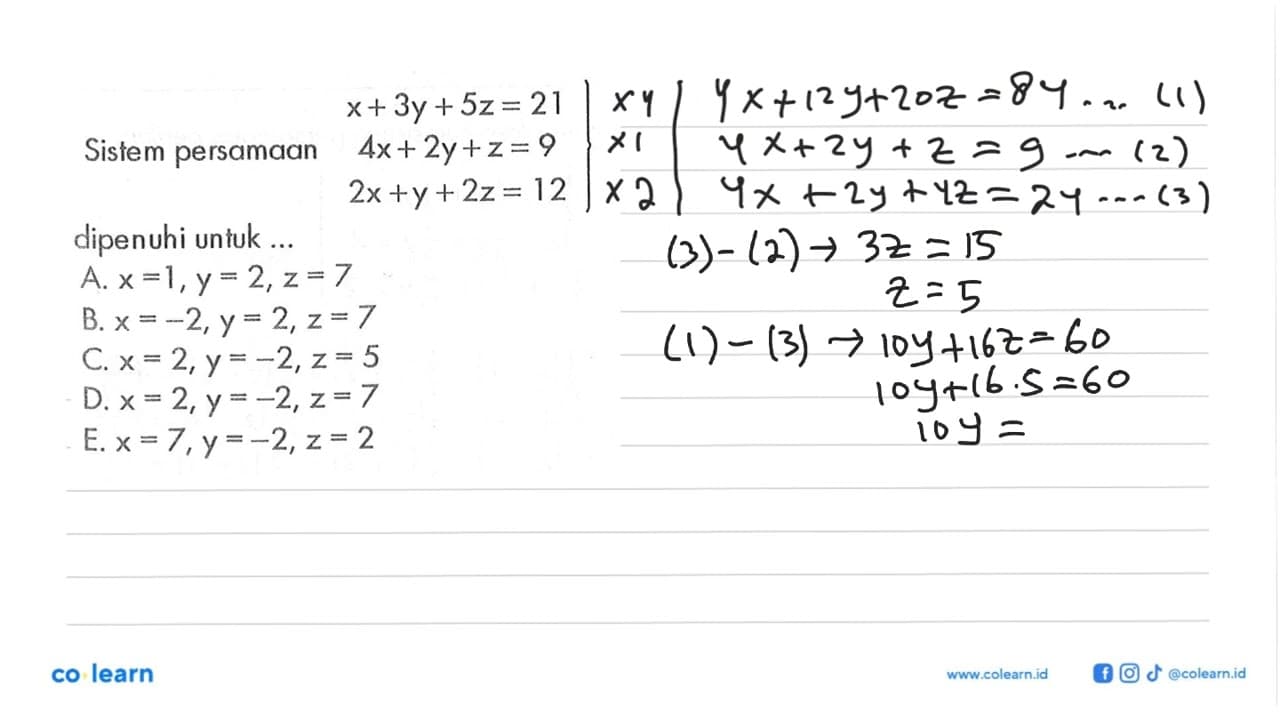 x + 3y + 5z = 21 | x4 | 4x + 12y + 20z = 84 ... (1)
Sistem persamaan 4x + 2y + z = 9 | x1 | 4x + 2y + z = 9 ... (2)
2x + y + 2z = 12 | x2 | 4x + 2y + 4z = 24 ... (3)
dipenuhi untuk ...
A. x = 1, y = 2, z = 7
B. x = –2, y = 2, z = 7
C. x = 2, y = –2, z = 5
D. x = 2, y = –2, z = 7
E. x = 7, y = –2, z = 2
(3) - (2) → 3z = 15
z = 5
(1) - (3) → 10y + 16z = 60
10y + 16.5 = 60
10y =
co learn
www.colearn.id
@colearn.id